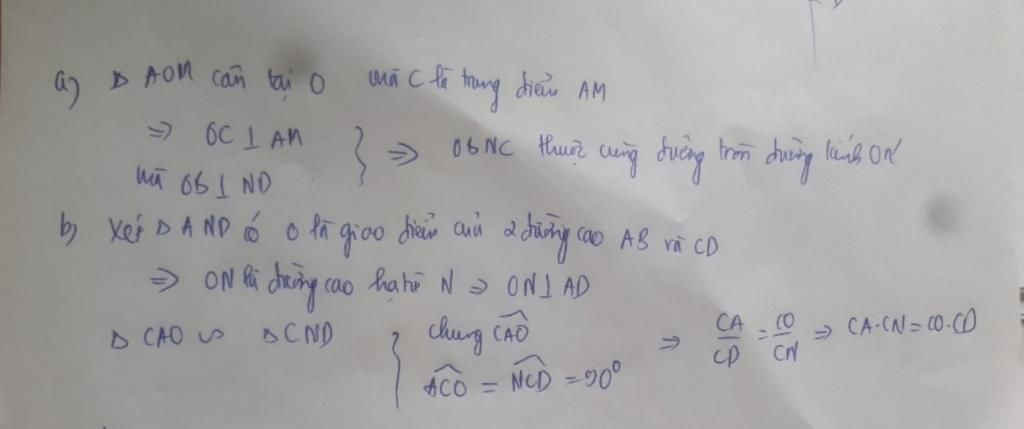 a) Δ AOM cân tại O mà C là trung điểm AM
⇒ OC ⊥ AM
mà OB ⊥ ND } ⇒ OBNC thuộc cùng đường tròn đường kính ON
b) Xét Δ AND có O là giao điểm của 2 đường cao AB và CD
⇒ ON là đường cao hạ từ N ⇒ ON ⊥ AD
Δ CAO ∽ Δ CND { chung \widehat{CAO}
\widehat{ACO} = \widehat{NCD} = 90° ⇒ CA/CD = CO/CN ⇒ CA.CN = CO.CD